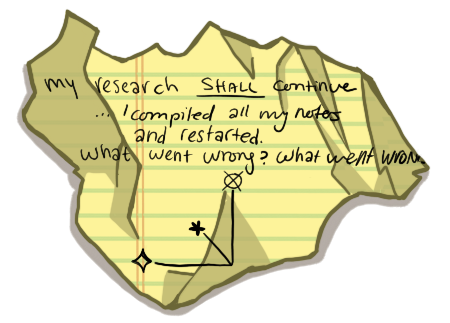 my research SHALL continue
... I compiled all my notes
and restarted.
what went wrong? what went wrong.